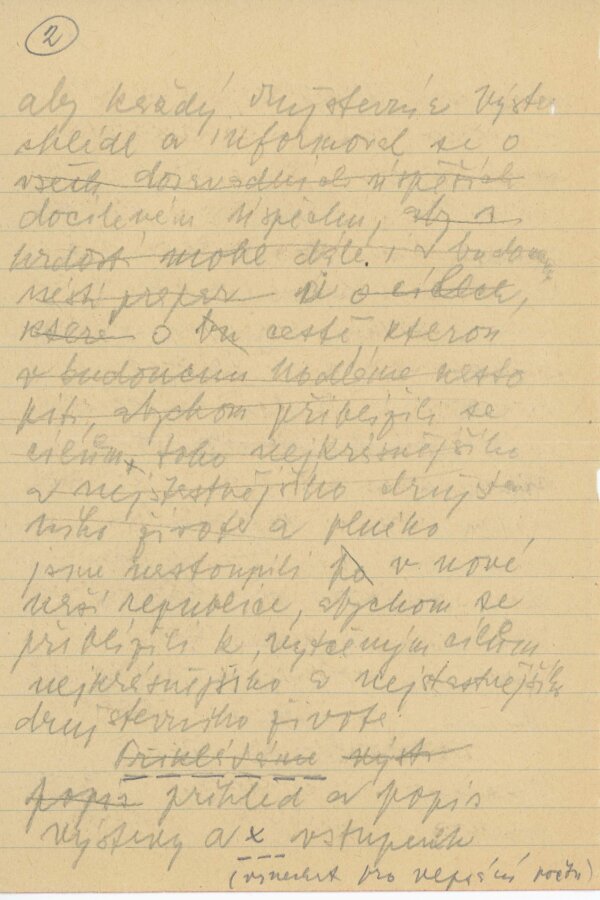 2
aby každý družstevník výstavu
shlédl a informoval se o
všech dosavadních úspěších
docíleném úspěchu, aby s
hrdostí mohl dále i v budoucnu
nésti prapor o cílech,
které o tu cestě, kterou
v budoucnu hodláme nasto
piti, abychom přiblížili se
cílům, toho nejkrásnějšího
a nejšťastnějšího družstev
ního života a plného
jsme nastoupili po v nové
naší republice, abychom se
přiblížili k vytčeným cílům
nejkrásnějšího a nejšťastnějšího
družstevního života.
Přikládáme výst
popis přihled a popis
výstavy a x vstupenk
(vynechat pro